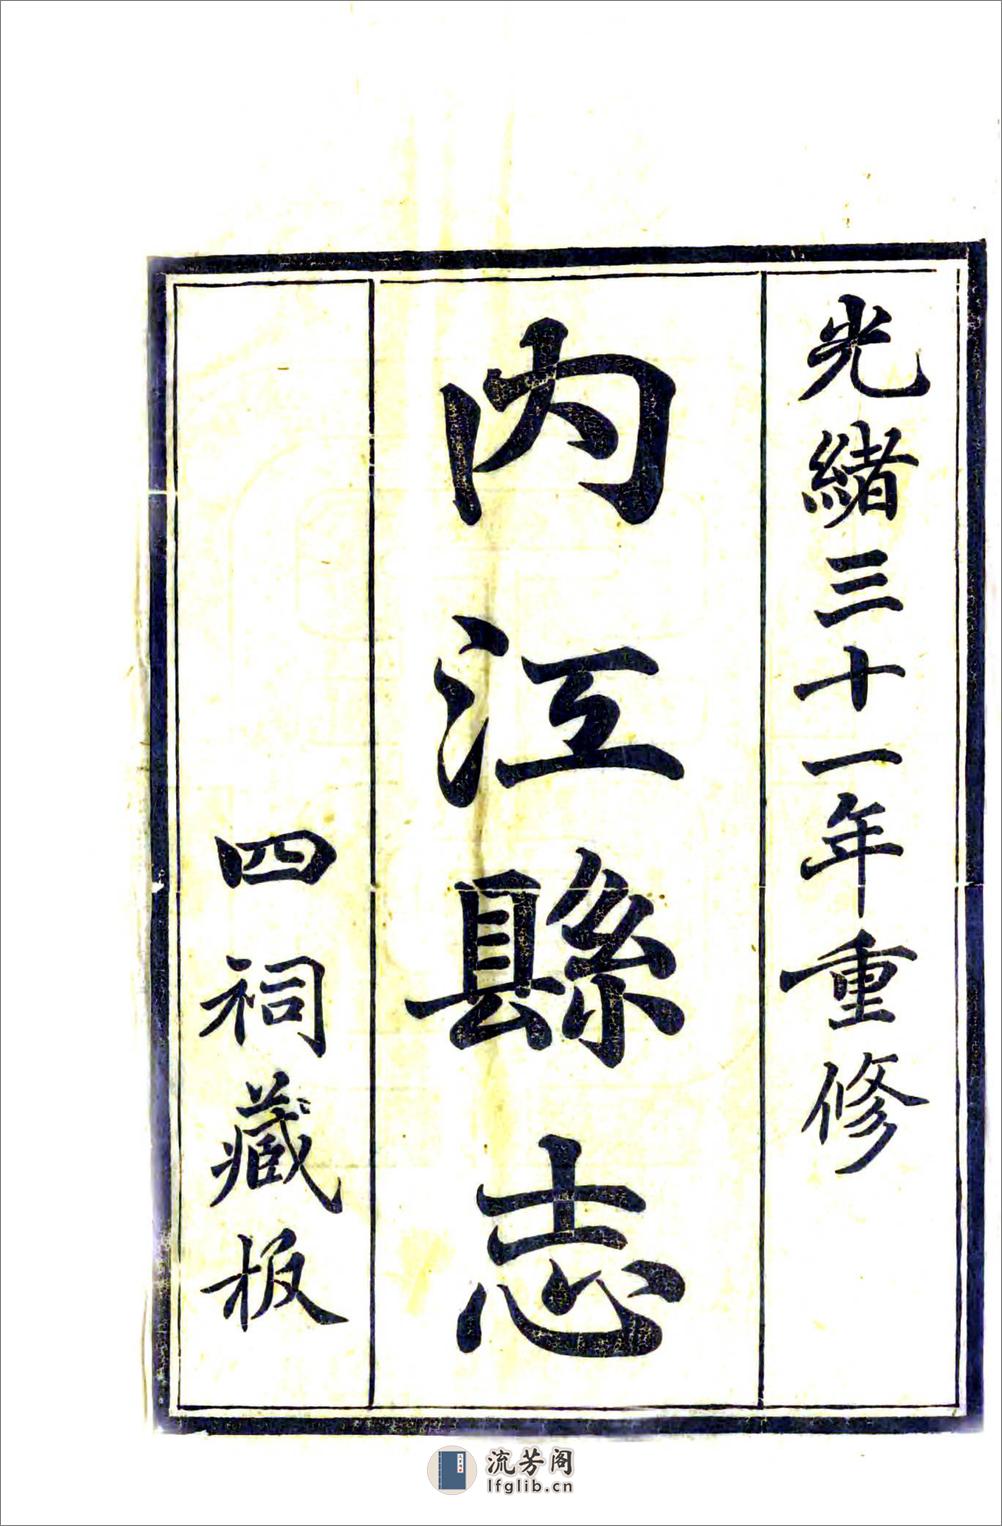 光緒三十一年重修
內江縣志
四祠藏板
流芳阁
lfglib.cn